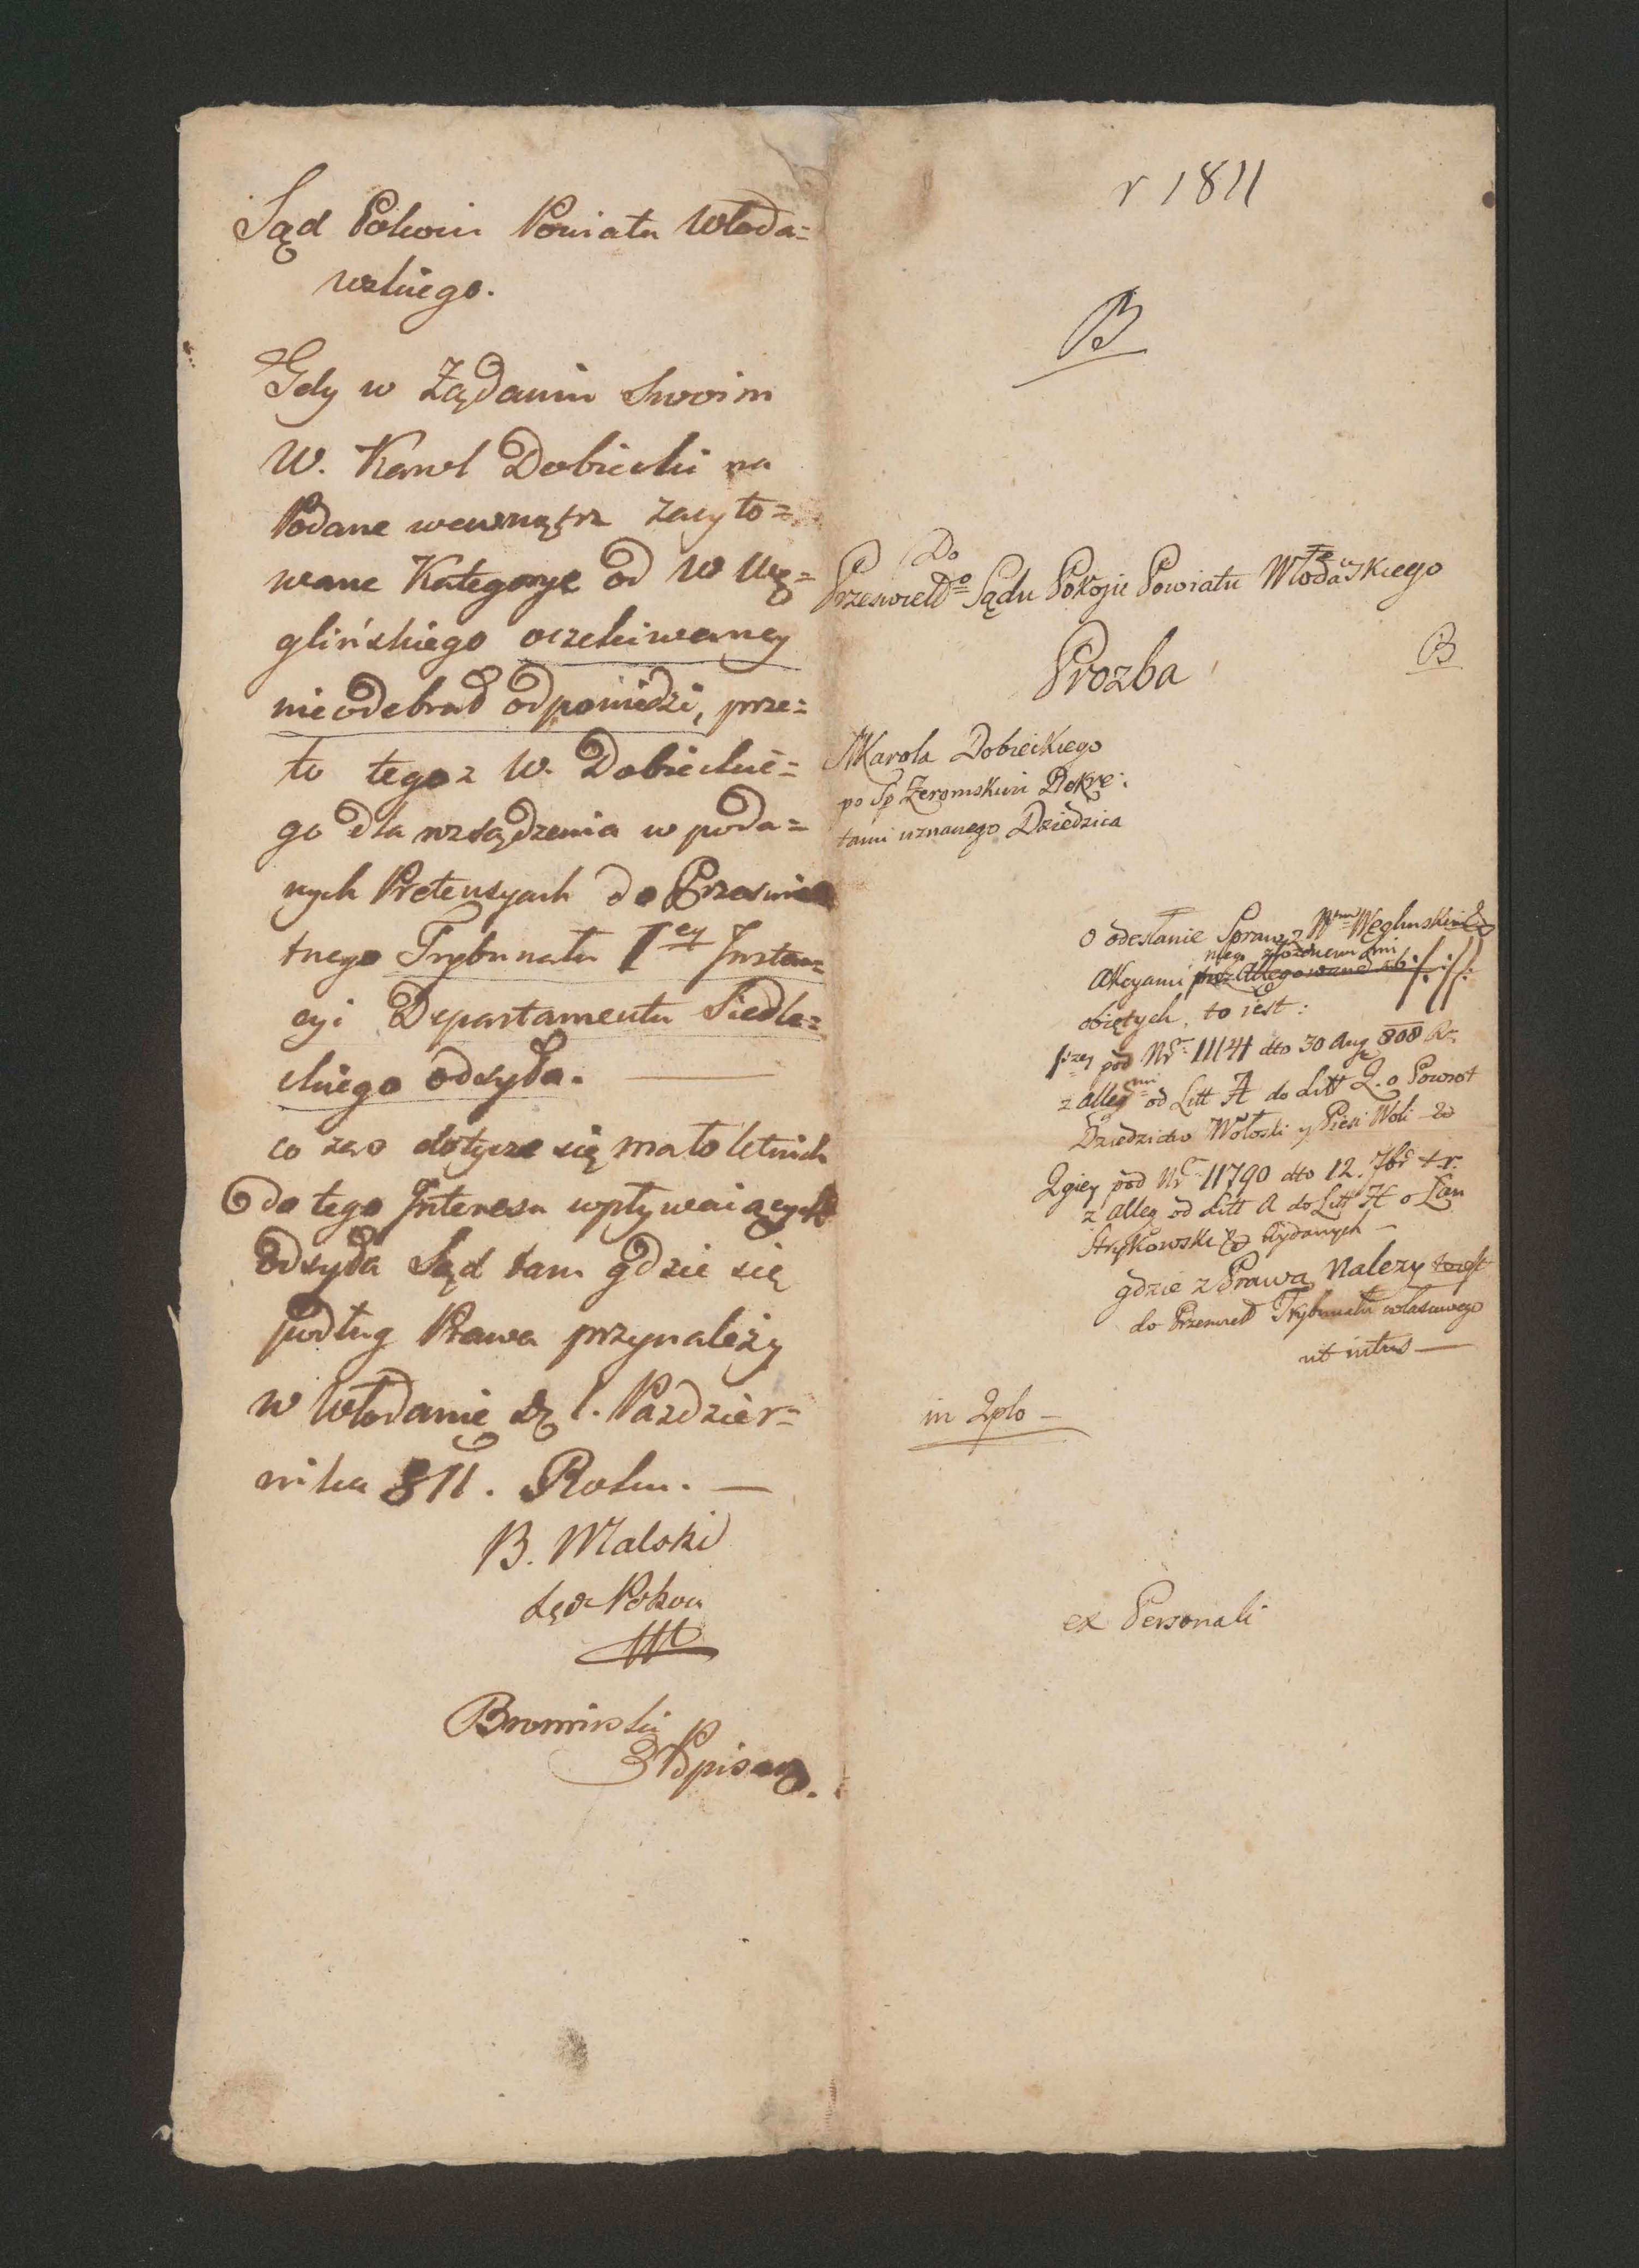 Sąd Pokoiu Powiatu Włoda=
wskiego.
Gdy w Żądaniu Swoim
W. Karol Dobiecki na
Podane wewnątrz zacyto=
wane Kategorye od W Wę=
glińskiego oczekiwaney
nieodebrał odpowiedzi, prze=
to tegoz W. Dobieckie=
go dla rozsądzenia w poda=
nych Pretensyach do Przeswie
tnego Trybunału I ey Instan=
cyi Departamentu Siedle=
ckiego odsyła.
co zaś dotycze się małoletnich
do tego Interesu wpływaiących
Odsyła Sąd tam gdzie się
podług Prawa przynależy
w Włodawie dz 1. Paździer=
nika 811. Roku.
B. Malski
Sęd Pokoiu
Bromirski
Pisarz.
r 1811
B
Do
Przeswietło Sądu Pokoju Powiatu Włodawskiego
Prozba
B
Karola Dobieckiego
po Sp Zeromskim Dekre:
tami uznanego Dziedzica
O odesłanie Sprawy z Wm Węglinskim
niego złożonemi
Akcyami
obiętych, to iest:
1szey pod Nr 11141 dto 30 Aug 808 Rr.
z alleg mi od Litt A do Litt Q. o Powrot
Dziedzictwo Wołoski y Piesi Woli
2giey pod Nr 11790 dto 12. 7br t.r.
z alleg od Litt A do Litt H o
Strykowsk wydanych
gdzie z Prawa Nalezy
do Przeswieł Trybunału własciwego
ut intus
in 2plo
ex Personali